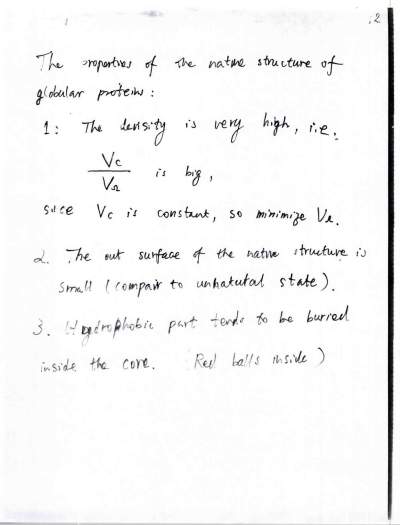 2
The properties of the native structure of
globular proteins:
1: The density is very high, i.e.
Vc
VΩ
is big,
since Vc is constant, so minimize VΩ.
2. The out surface of the native structure is
small (compair to unnatural state).
3. Hydrophobic part tends to be buried
inside the core. Red balls inside)